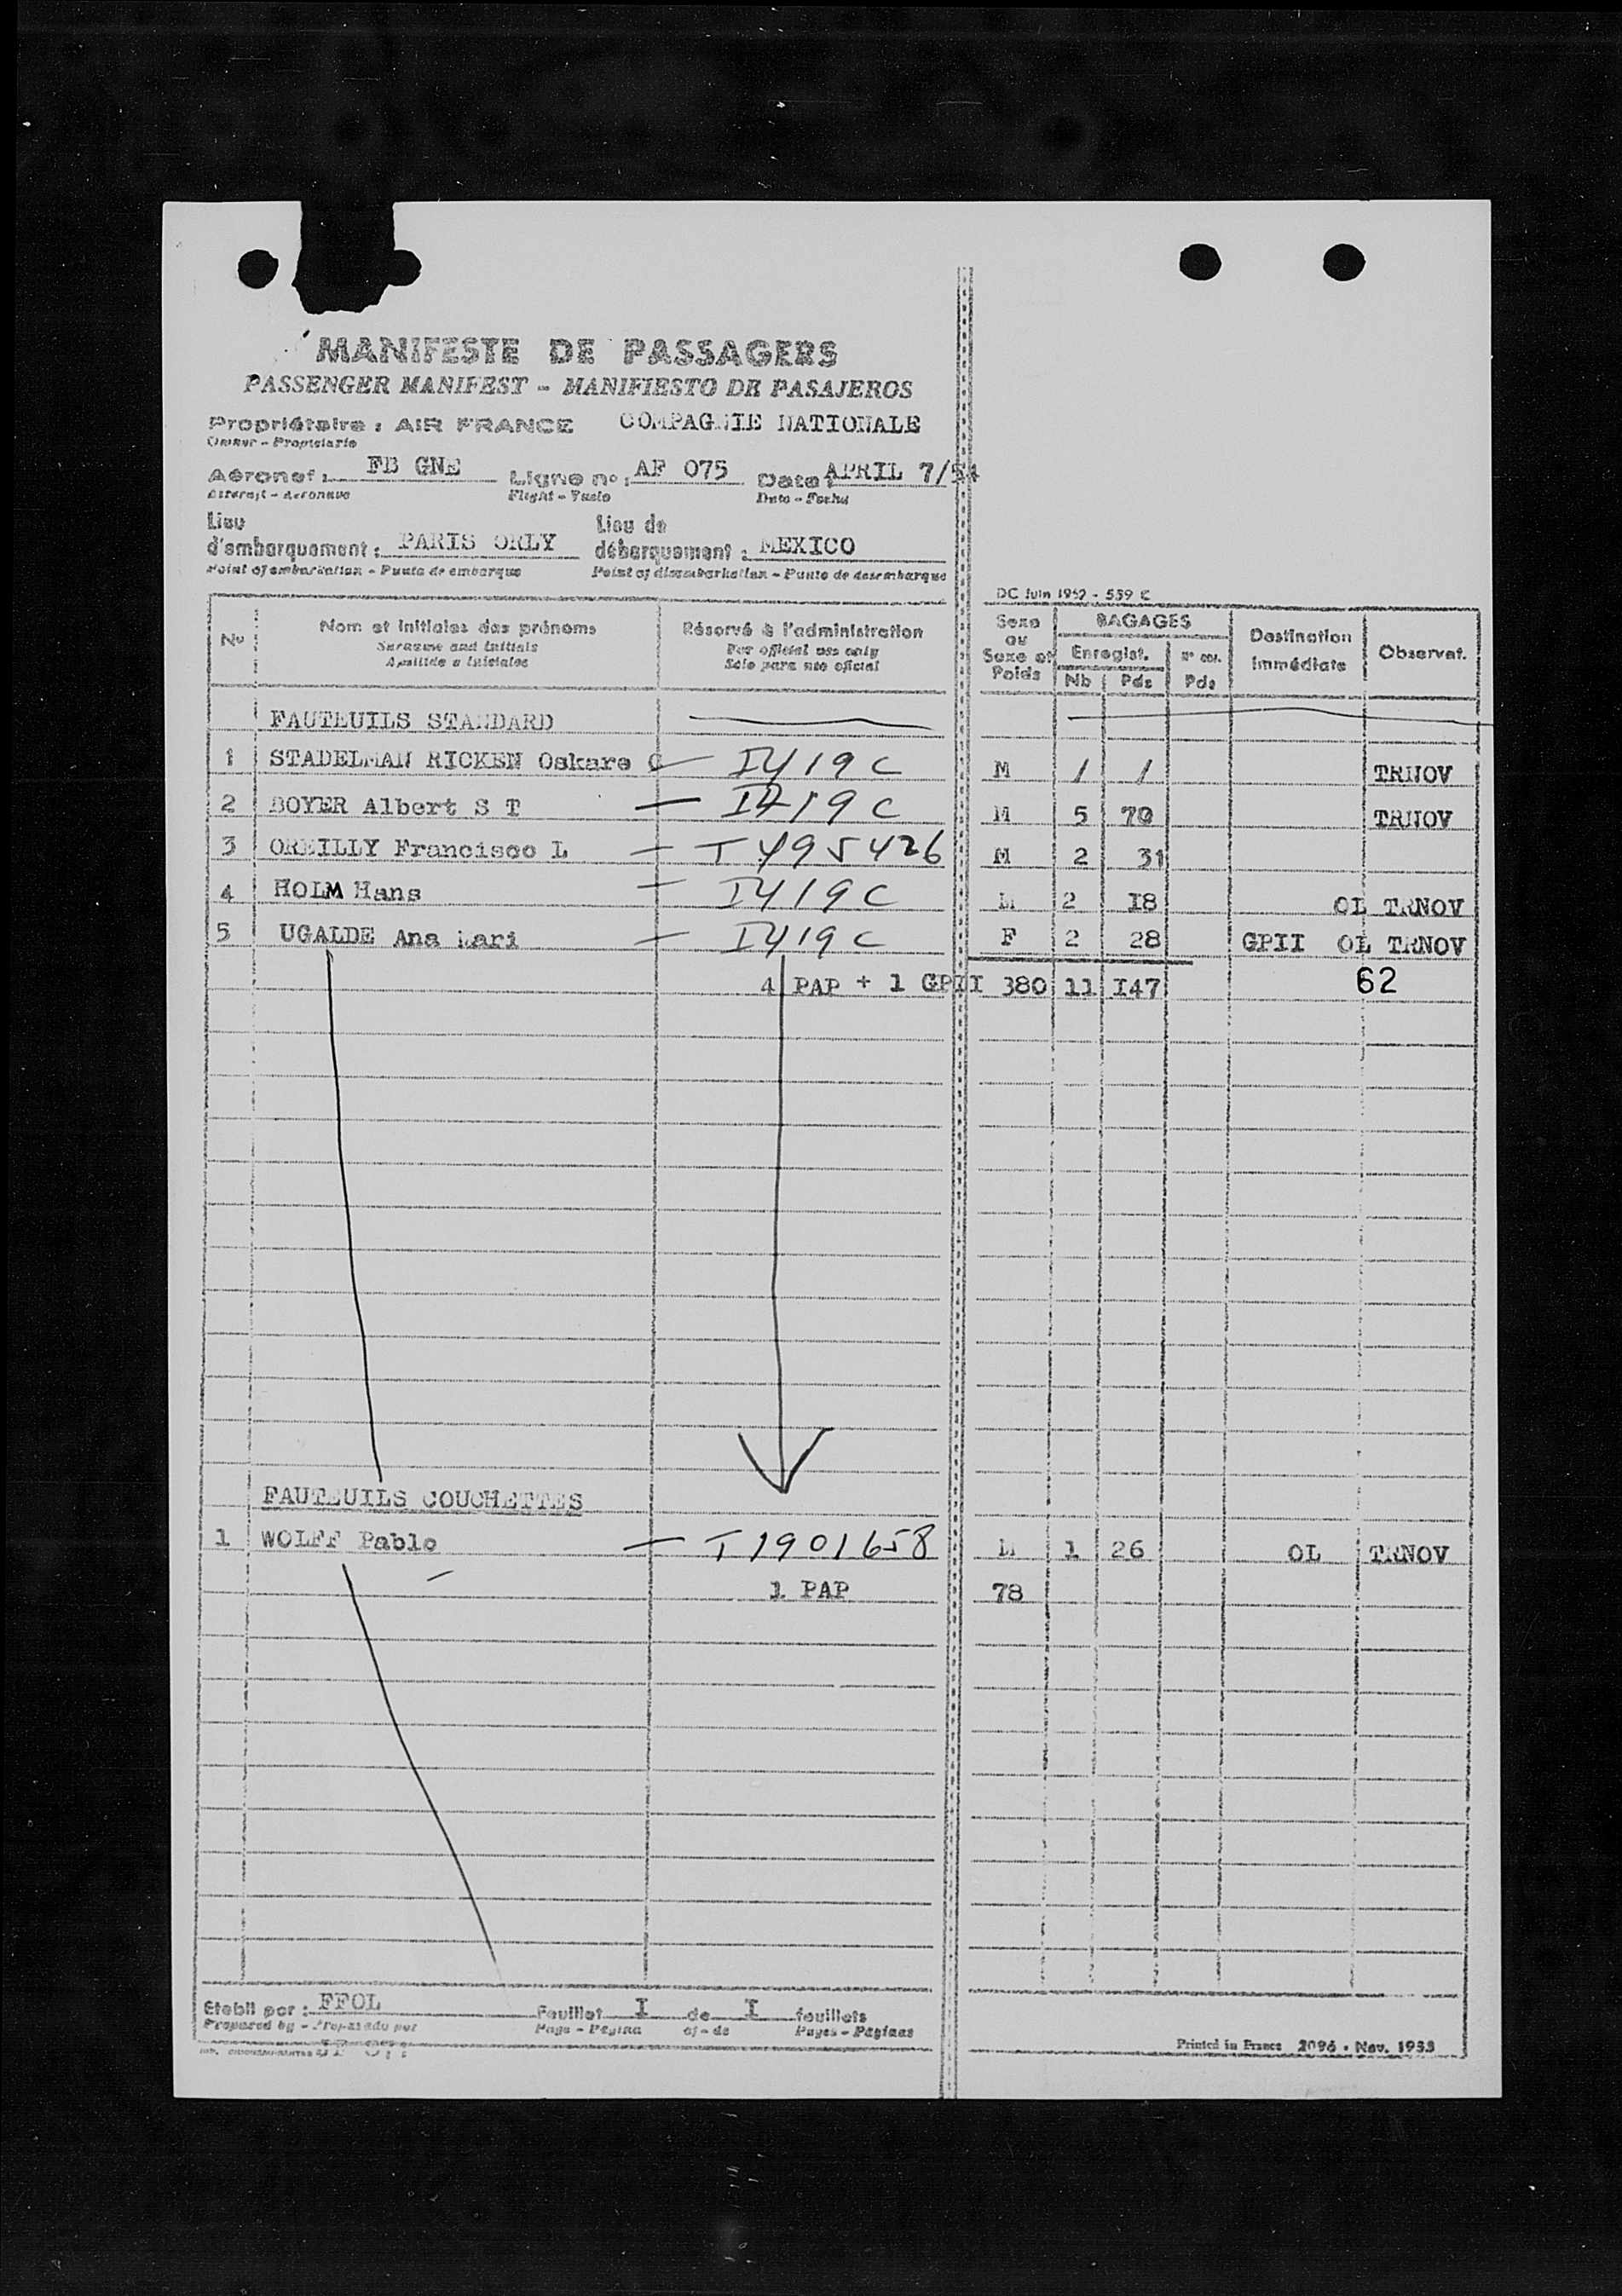 MANIFESTE DE PASSAGERS
PASSENGER MANIFEST - MANIFIESTO DE PASAJEROS
Propriétaire : AIR FRANCE COMPAGNIE NATIONALE
Owner - Propietario
Aéronef : FB GNE Ligne n° : AF 075 Date : APRIL 7/54
Aircraft - Aeronave Flight - Vuelo Date - Fecha
Lieu d'embarquement : PARIS ORLY Lieu de débarquement : MEXICO
Point of embarkation - Punto de embarque Point of disembarkation - Punto de desembarque
DC Juin 1952 - 559 C
N° Nom et initiales des prénoms Réservé à l'administration Sexe ou Sexe et Poids BAGAGES Destination immédiate Observat.
Surname and initials For official use only Enregist. N° col.
Apellido e iniciales Sólo para uso oficial Nb Pds Pds
FAUTEUILS STANDARD
1 STADELMAN RICKEN Oskare C — I419C M / / TRNOV
2 BOYER Albert S T — I419C M 5 70 TRNOV
3 OREILLY Francisco L — T495426 M 2 31
4 HOLM Hans — I419C M 2 I8 OL TRNOV
5 UGALDE Ana Mari — I419C F 2 28 GPII OL TRNOV
4 PAP + 1 GPII 380 11 I47 62
FAUTEUILS COUCHETTES
1 WOLFF Pablo — T1901658 M 1 26 OL TRNOV
1 PAP 78
Etabli par : FFOL Feuillet I de I feuillets
Prepared by - Preparado por Page - Página of - de Pages - Páginas
Printed in France 2096 - Nov. 1953